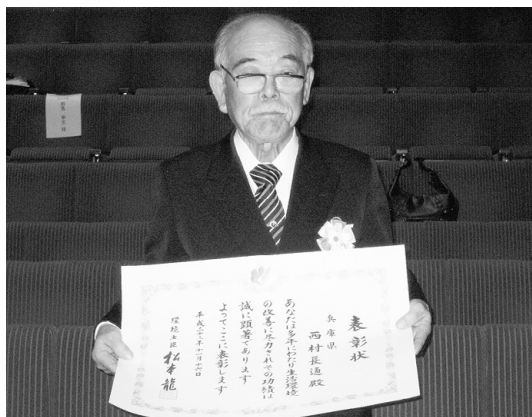 表彰状
兵庫県
西村長通殿
あなたは多年にわたり生活環境
の改善に尽力されその功績は
誠に顕著であります
よってここに表彰します
平成二十二年十一月十六日
環境大臣 松本龍